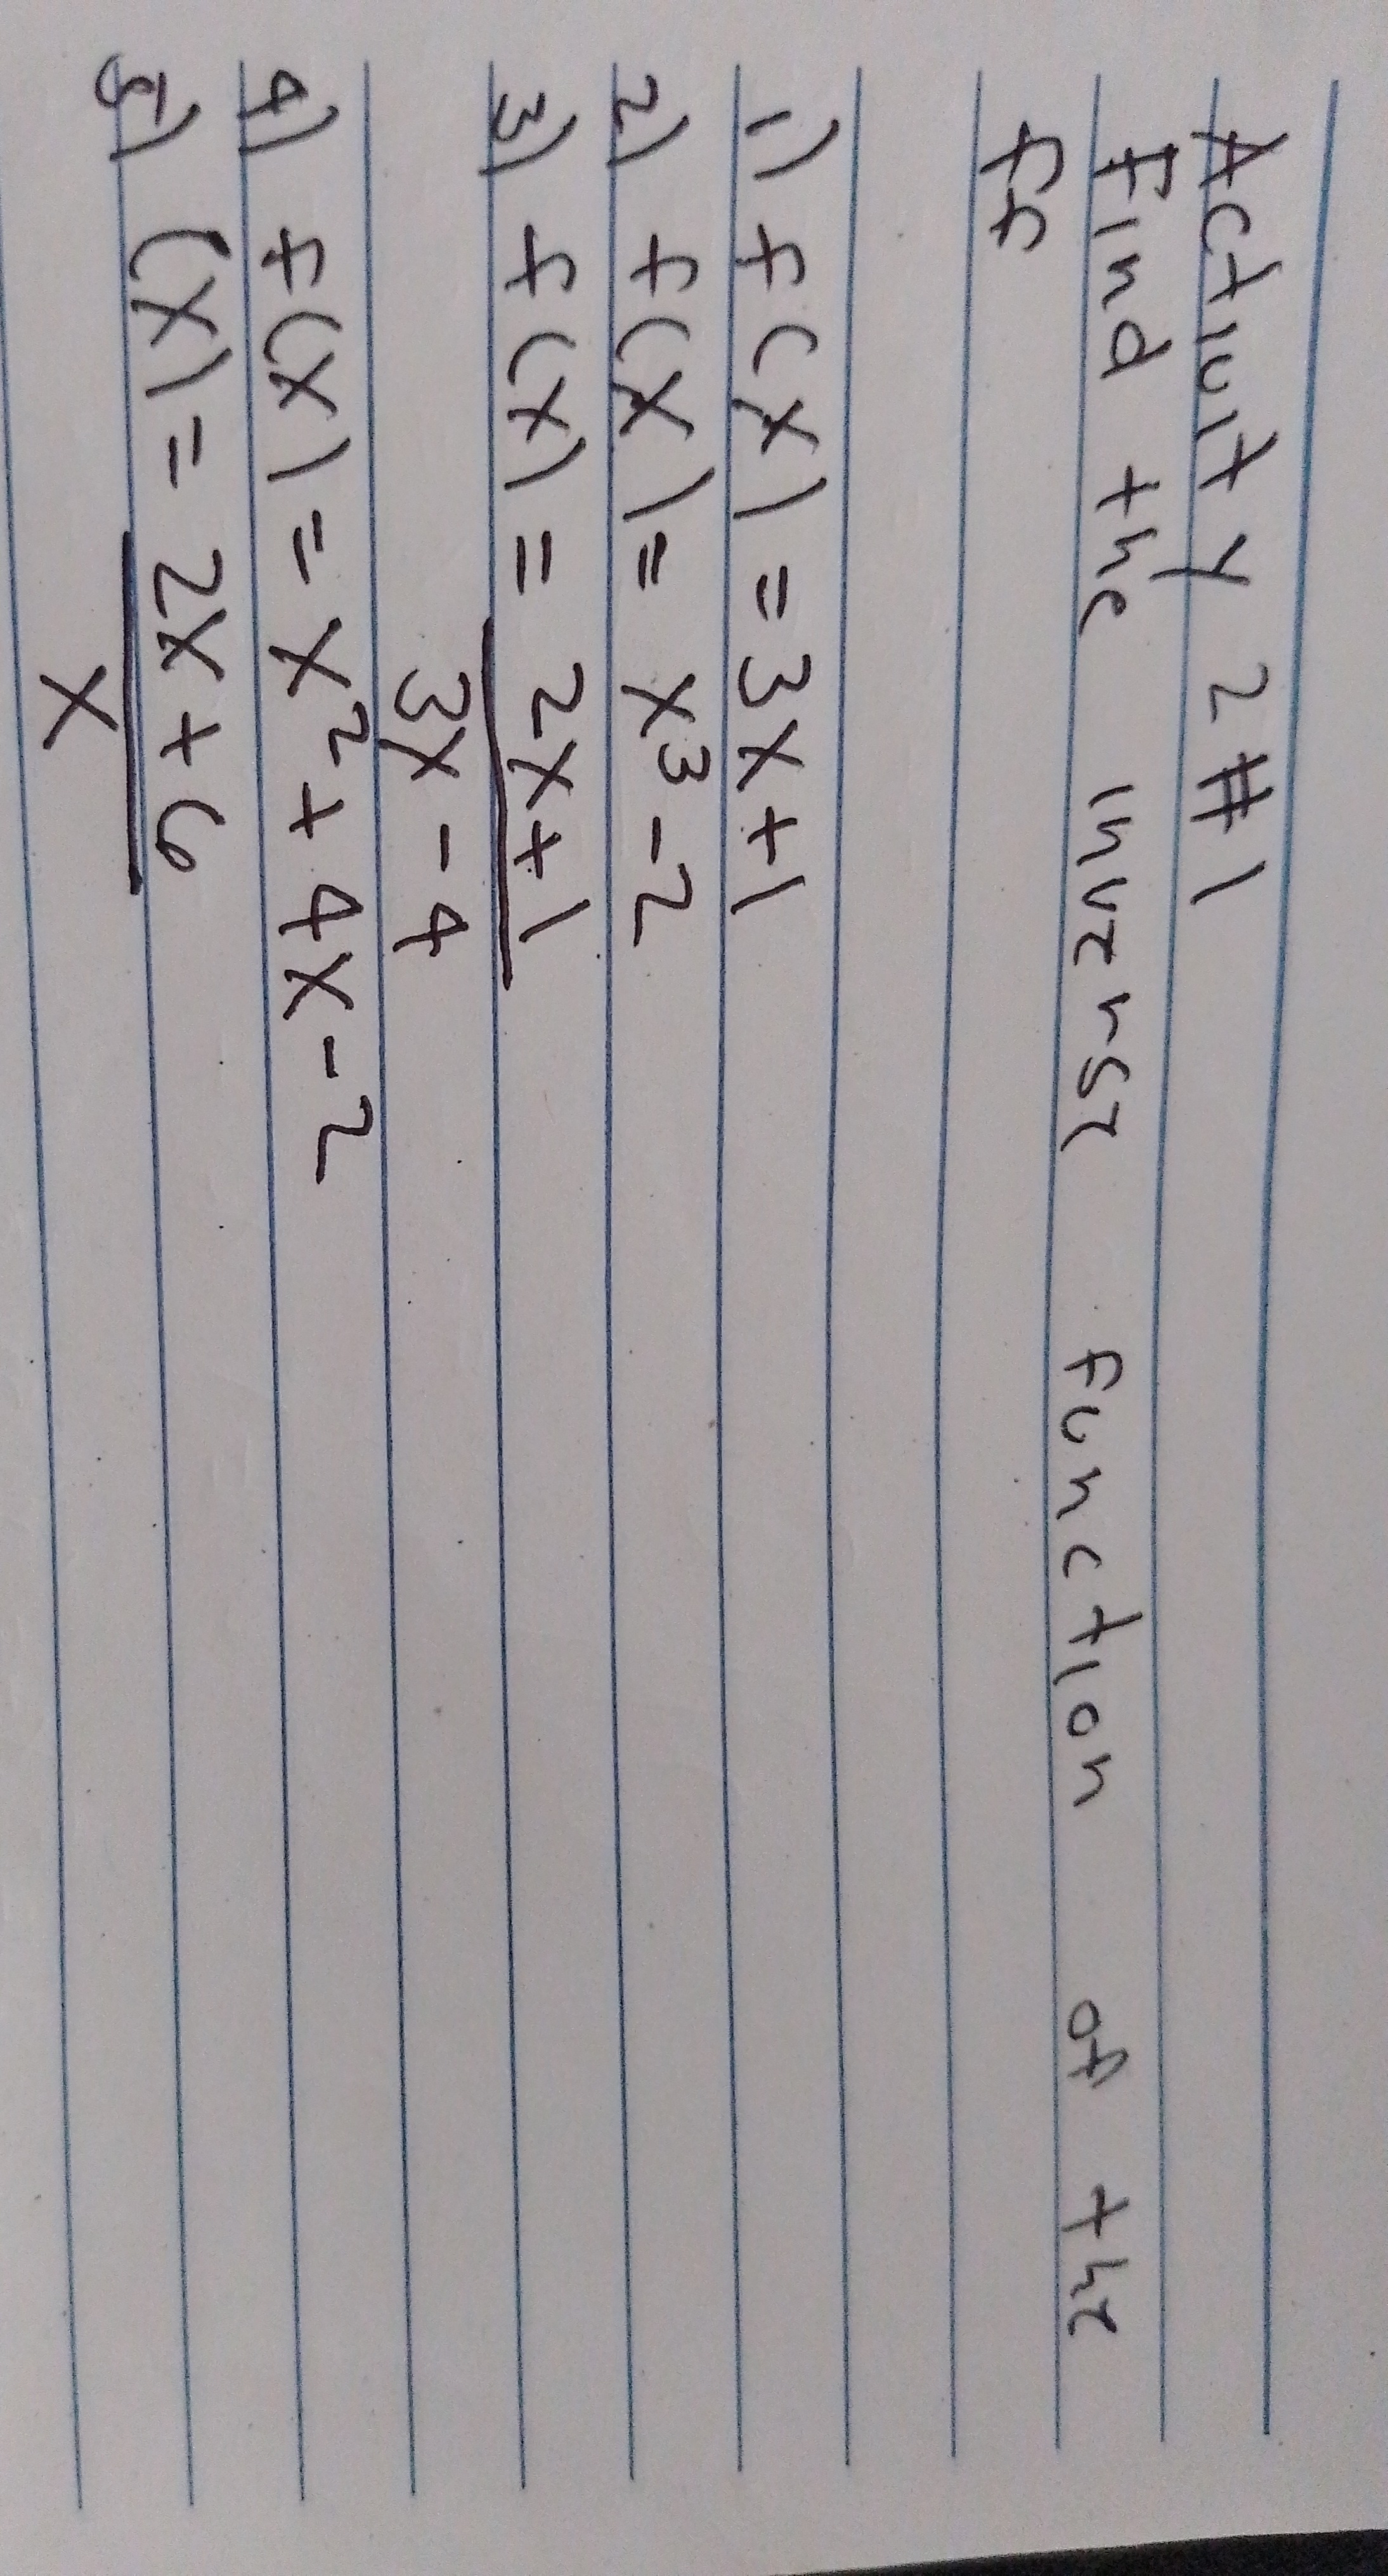 Activity 2 #1
Find the inverse function of the
ff
1) f(x) = 3x+1
2) f(x) = x³-2
3) f(x) = 2x+1
3x-4
4) f(x) = x²+4x-2
5) (x) = 2x+6
x